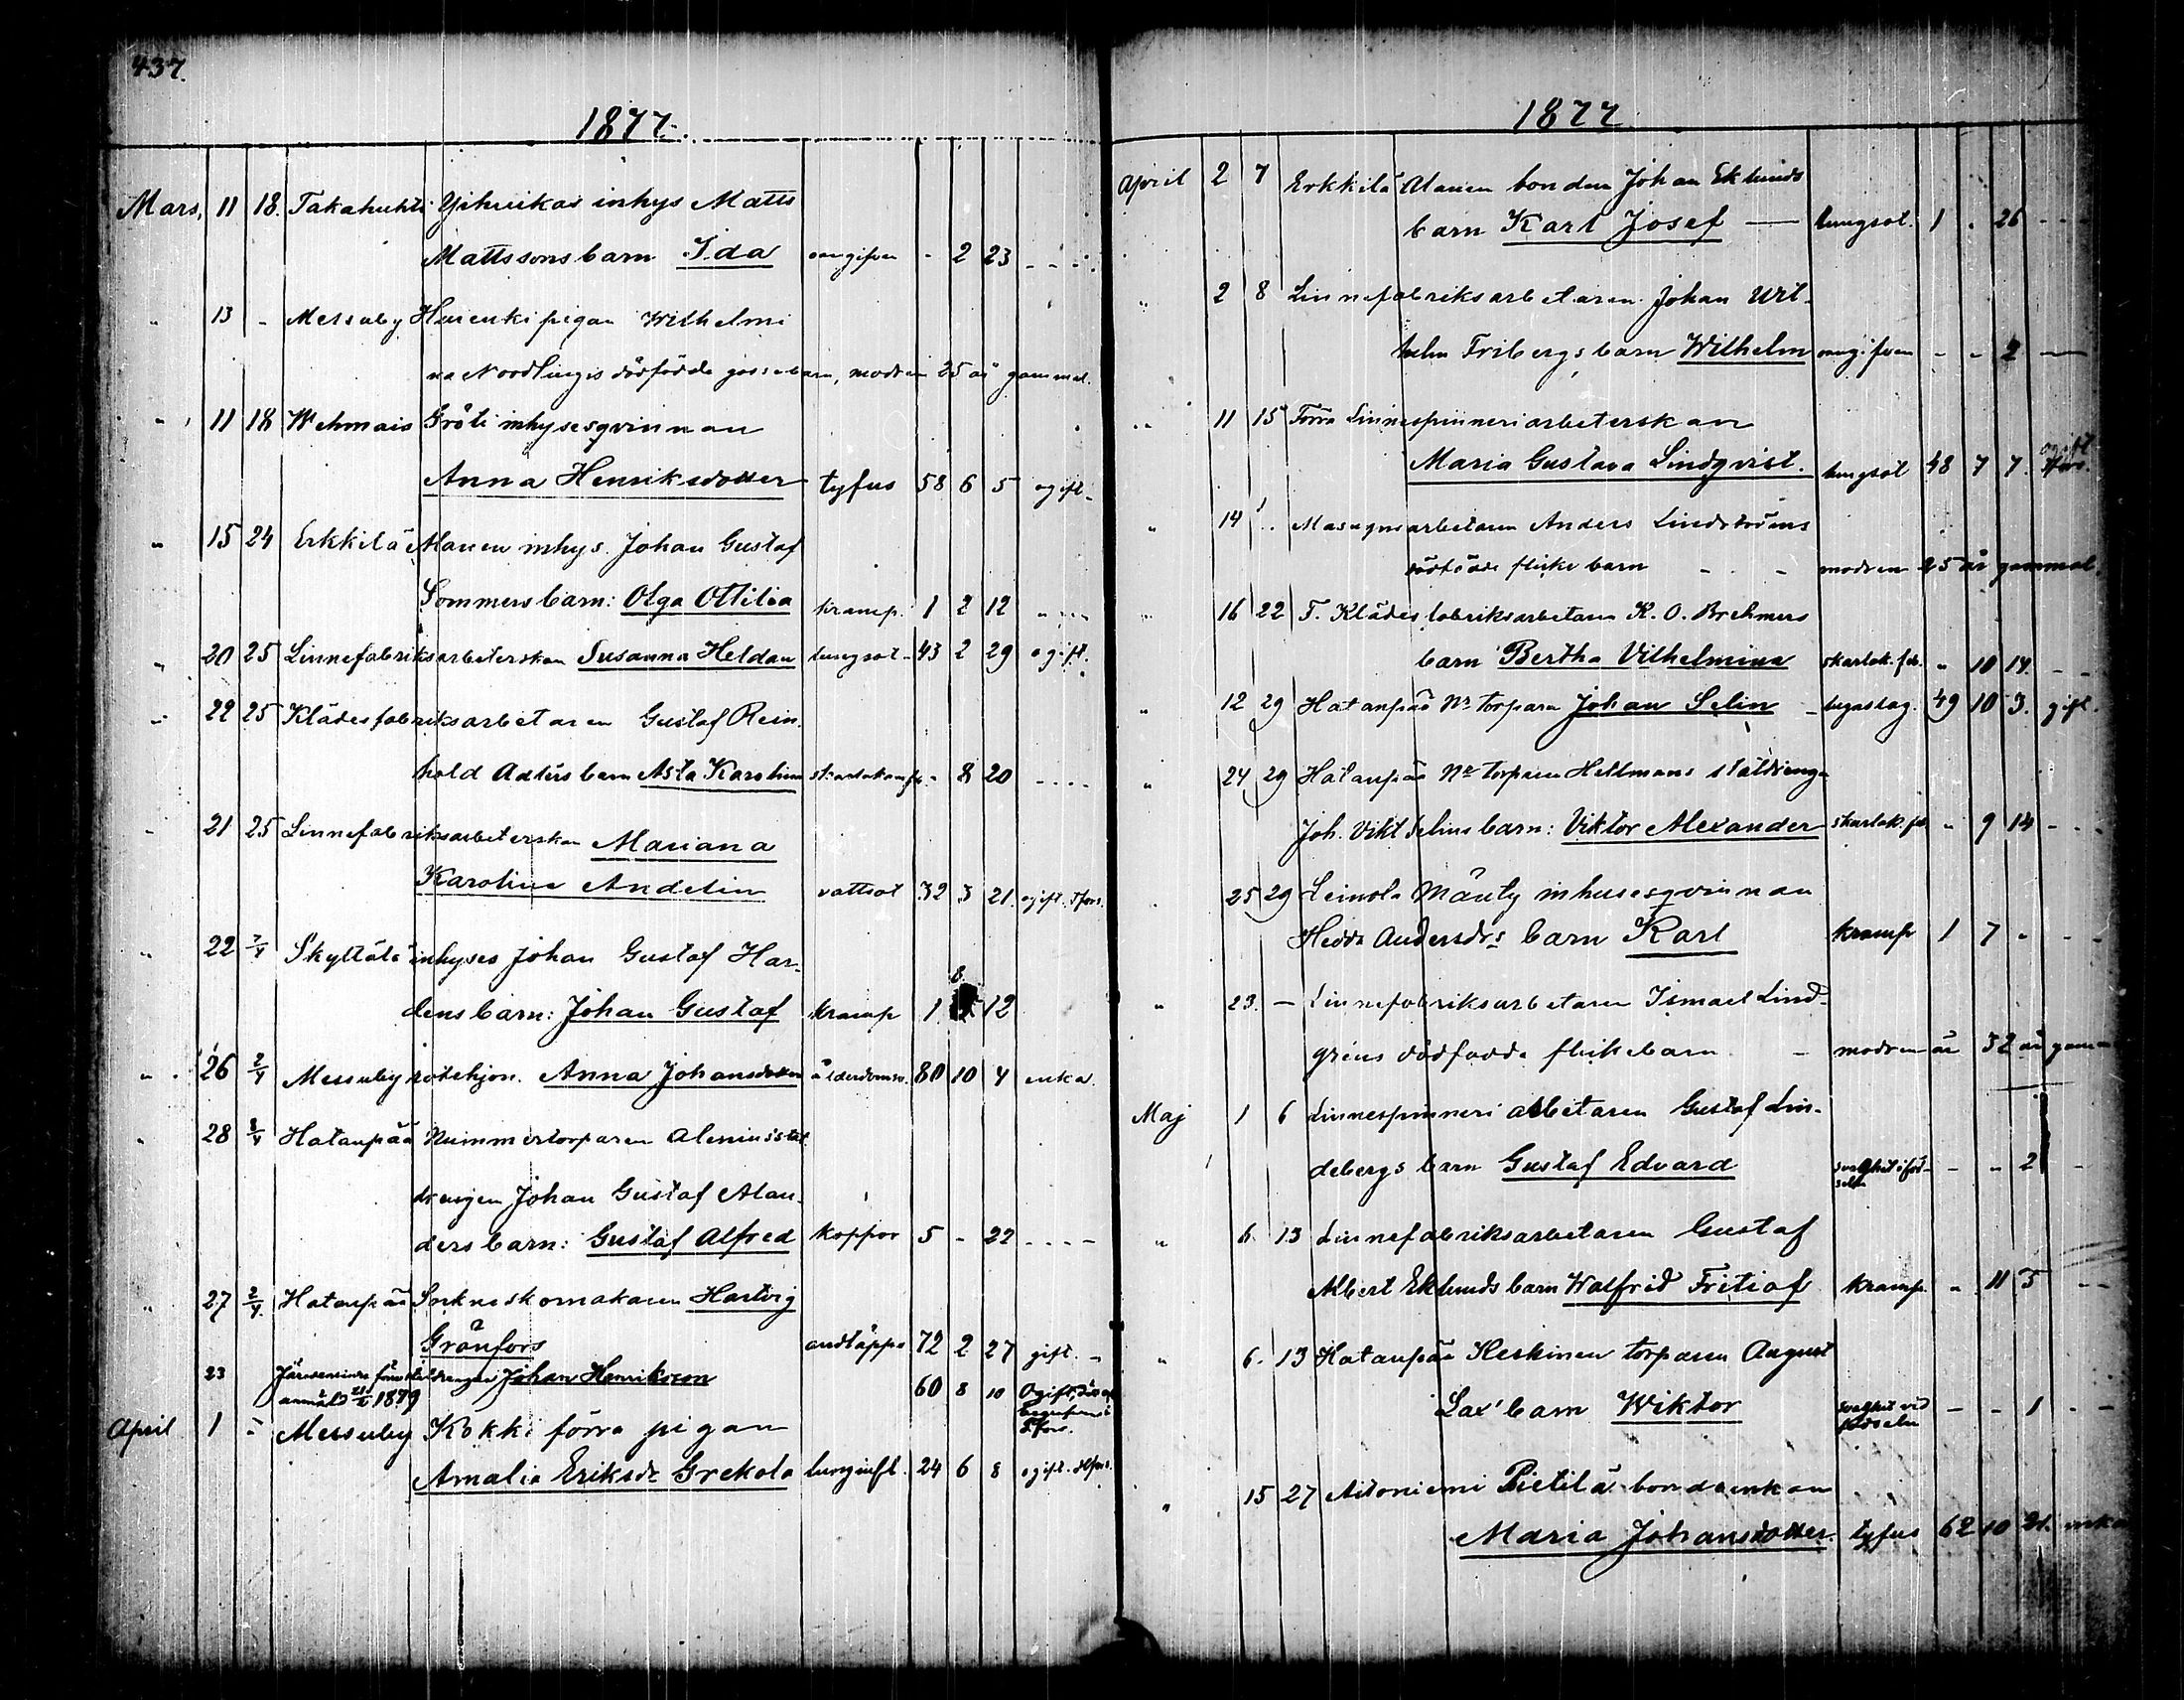 437.
1877.
Mars, 11 18. Takahuhti Yihuikas inhys Matts
Mattssons barn Ida oangifven - 2 23 - - -
" 13 - Messuby Harenki pigan Wilhelmi
na Nordlings dödfödda gossebarn, modren 25 år gammal.
" 11 18 Wehmais Gröti inhysesqvinnan
Anna Henriksdotter tyfus 58 6 5 ogift
" 15 24 Erkkilä Alanen inhys. Johan Gustaf
Sommers barn: Olga Ottilia kramp. 1 2 12 - - -
" 20 25 Linnefabriksarbeterskan Susanna Heldan lungsot 43 2 29 ogift.
" 22 25 Klädesfabriksarbetaren Gustaf Rein-
hold Adlers barn Asta Karolina - 8 20 - - - -
" 21 25 Linnefabriksarbeterskan Mariana
Karolina Andelin vattsot 32 3 21. ogift. Tfors.
" 22 7/4 Skyttälä inhyses Johan Gustaf Har-
dens barn: Johan Gustaf kramp 1 8 12
" 26 2/4 Messuby rotehjon. Anna Johansdotter ålderdomsv. 80 10 4 enka.
" 28 8/4 Hatanpää Nummertorparen
drengen Johan Gustaf Alan-
ders barn: Gustaf Alfred koppor 5 - 22 - - - -
" 27 2/4. Hatanpää Sockneskomakaren Hartvig
Grönfors andtäppa 72 2 27 gift. -
23 Johan Henriksson 60 8 10 Ogift,
anmäld 1879 Tfors.
April 1 - Messuby Kokki förra pigan
Amalia Eriksdr Grekola lunginfl. 24 6 8 ogift.
1877.
April 2 7 Erkkilä Alanen bonden Johan Eklunds
barn Karl Josef — lungsot. 1 . 26 - - -
" 2 8 Linnefabriksarbetaren Johan Wil-
helm Fribergs barn Wilhelm oangifven - - 2 —
" 11 15 Förra Linnespinneriarbeterskan
Maria Gustava Lindqvist. lungsot 48 7 7. ogift Tfors.
" 14 Masugnsarbetaren Anders Lindströms
dödfödda flickebarn - - - modren 25 år gammal.
" 16 22 T. Klädesfabriksarbetaren K. O. Brehmers
barn Bertha Vilhelmina skarlak. feb. " 10 14. - -
" 12 29 Hatanpää Nr torparn Johan Selin - 49 10 3. gift.
" 24 29 Hatanpää Nr torparen Hellmans stalldrengs
Joh. Vikt Selins barn: Viktor Alexander skarlak. feb " 9 14 - - -
25 29 Leinola Mänty inhusesqvinnan
Hedda Andersdrs barn Karl kramp 1 7 - - -
" 23. — Linnefabriksarbetaren Ismael Lind-
gréns dödfödda flickebarn - modren är 32 år gammal
Maj 1 6 Linnespinneri arbetaren Gustaf Lin-
debergs barn Gustaf Edvard svaghet i föd-
seln - - 2 -
" 6. 13 Linnefabriksarbetaren Gustaf
Albert Eklunds barn Walfrid Fritiof kramp. " 11 5 - -
" 6. 13 Hatanpää Keskinen torparen August
Lax' barn Wiktor svaghet vid
födseln - - 1 - -
" 15 27 Aitoniemi Pietilä bondeenkan
Maria Johansdotter. tyfus 62 10 21. enka